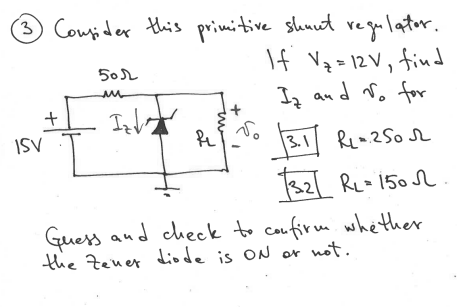 ③ Consider this primitive shunt regulator.
If V_Z = 12V, find
I_Z and v_o for
50Ω
+
15V
I_Z ↓
R_L
+
v_o
-
3.1 R_L = 250 Ω
3.2 R_L = 150 Ω
Guess and check to confirm whether
the Zener diode is ON or not.